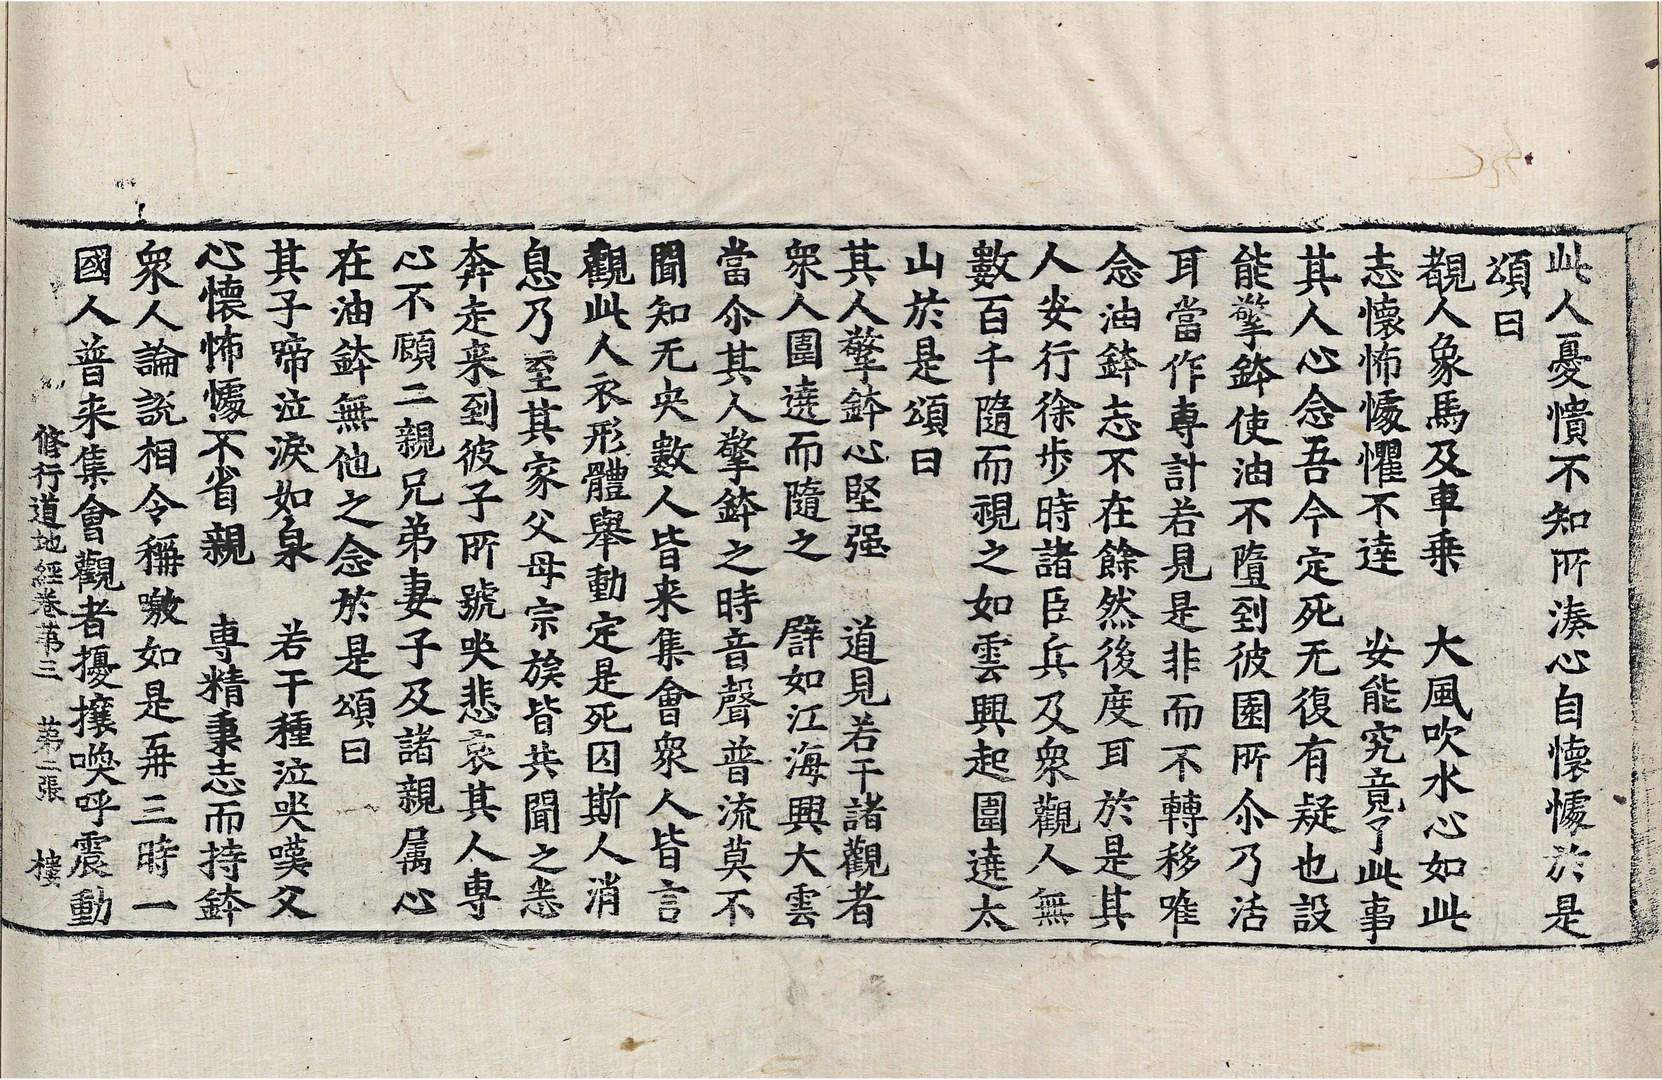 此人憂憒不知所湊心自懷懅於是
頌曰
覩人象馬及車乗　大風吹水心如此
志懷怖懅懼不達　安能究竟了此事
其人心念吾今定死无復有疑也設
能擎鉢使油不墮到彼園所尒乃活
耳當作専計若見是非而不轉移唯
念油鉢志不在餘然後度耳於是其
人安行徐歩時諸臣兵及衆觀人無
數百千隨而視之如雲興起圍遶太
山於是頌曰
其人擎鉢心堅强　道見若干諸觀者
衆人圍遶而隨之　譬如江海興大雲
當尒其人擎鉢之時音聲普流莫不
聞知无央數人皆来集會衆人皆言
觀此人衣形體舉動定是死囚斯人消
息乃至其家父母宗族皆共聞之悉
奔走来到彼子所號哭悲哀其人専
心不顧二親兄弟妻子及諸親属心
在油鉢無他之念於是頌曰
其子啼泣淚如泉　若干種泣哭嘆父
心懷怖懅不省親　専精秉志而持鉢
衆人論説相令稱噭如是再三時一
國人普来集會觀者擾攘喚呼震動
修行道地經卷第三　第二張　樓